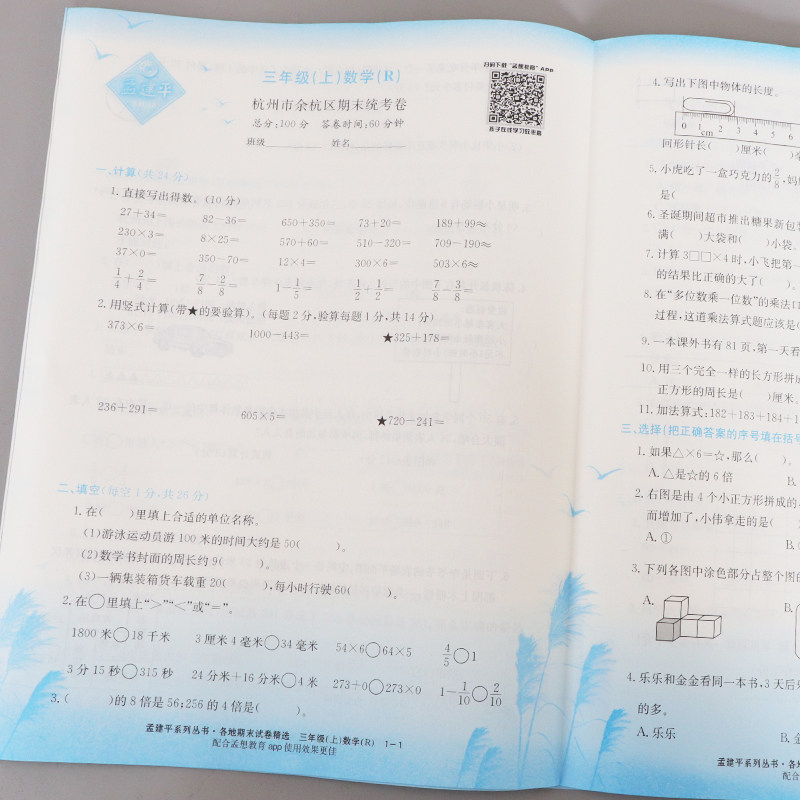 孟建平
三年级(上)数学(R)
杭州市余杭区期末统考卷
总分:100分 答卷时间:60分钟
班级________ 姓名________
扫码下载“孟想教育”app
一、计算(共24分)
1.直接写出得数。(10分)
27+34= 82-36= 650+350= 73+20= 189+99≈
230×3= 8×25= 570+60= 510-320= 709-190≈
37×0= 350-70= 12×4= 300×6= 503×6≈
1/4+2/4= 7/8-2/8= 1-1/5= 1/2+1/2= 7/8-3/8=
2.用竖式计算(带★的要验算)。(每题2分,验算每题1分,共14分)
373×6= 1000-443= ★325+178=
236+291= 605×5= ★720-241=
二、填空(每空1分,共26分)
1.在( )里填上合适的单位名称。
(1)游泳运动员游100米的时间大约是50( )。
(2)数学书封面的周长约9( )。
(3)一辆集装箱货车载重20( ),每小时行驶60( )。
2.在○里填上“>”“<”或“=”。
1800米○18千米 3厘米4毫米○34毫米 54×6○64×5 4/5○1
3分15秒○315秒 24分米+16分米○4米 273+0○273×0 1-1/10○2/10
3.( )的8倍是56;256的4倍是( )。
孟建平系列丛书·各地期末试卷精选 三年级(上)数学(R) 1-1
配合孟想教育app使用效果更佳
4.写出下图中物体的长度。
0 1 2 3 4 5 6
cm
回形针长( )厘米(
5.小虎吃了一盒巧克力的2/8,妈
是(
6.圣诞期间超市推出糖果新包装
满( )大袋和( )小袋。
7.计算3□□×4时,小飞把第一
的结果比正确的大了( )。
8.在“多位数乘一位数”的乘法口
过程,这道乘法算式题应该是(
9.一本课外书有81页,第一天看
10.用三个完全一样的长方形拼成
正方形的周长是( )厘米。
11.加法算式:182+183+184+1
三、选择(把正确答案的序号填在括号
1.如果△×6=☆,那么( )。
A.△是☆的6倍 B.
2.右图是由4个小正方形拼成的,
而增加了,小伟拿走的是(
A.① B.
3.下列各图中涂色部分占整个图的
A. B.
4.乐乐和金金看同一本书,3天后
的多。
A.乐乐 B.金
孟建平系列丛书·各地
配合孟想教育